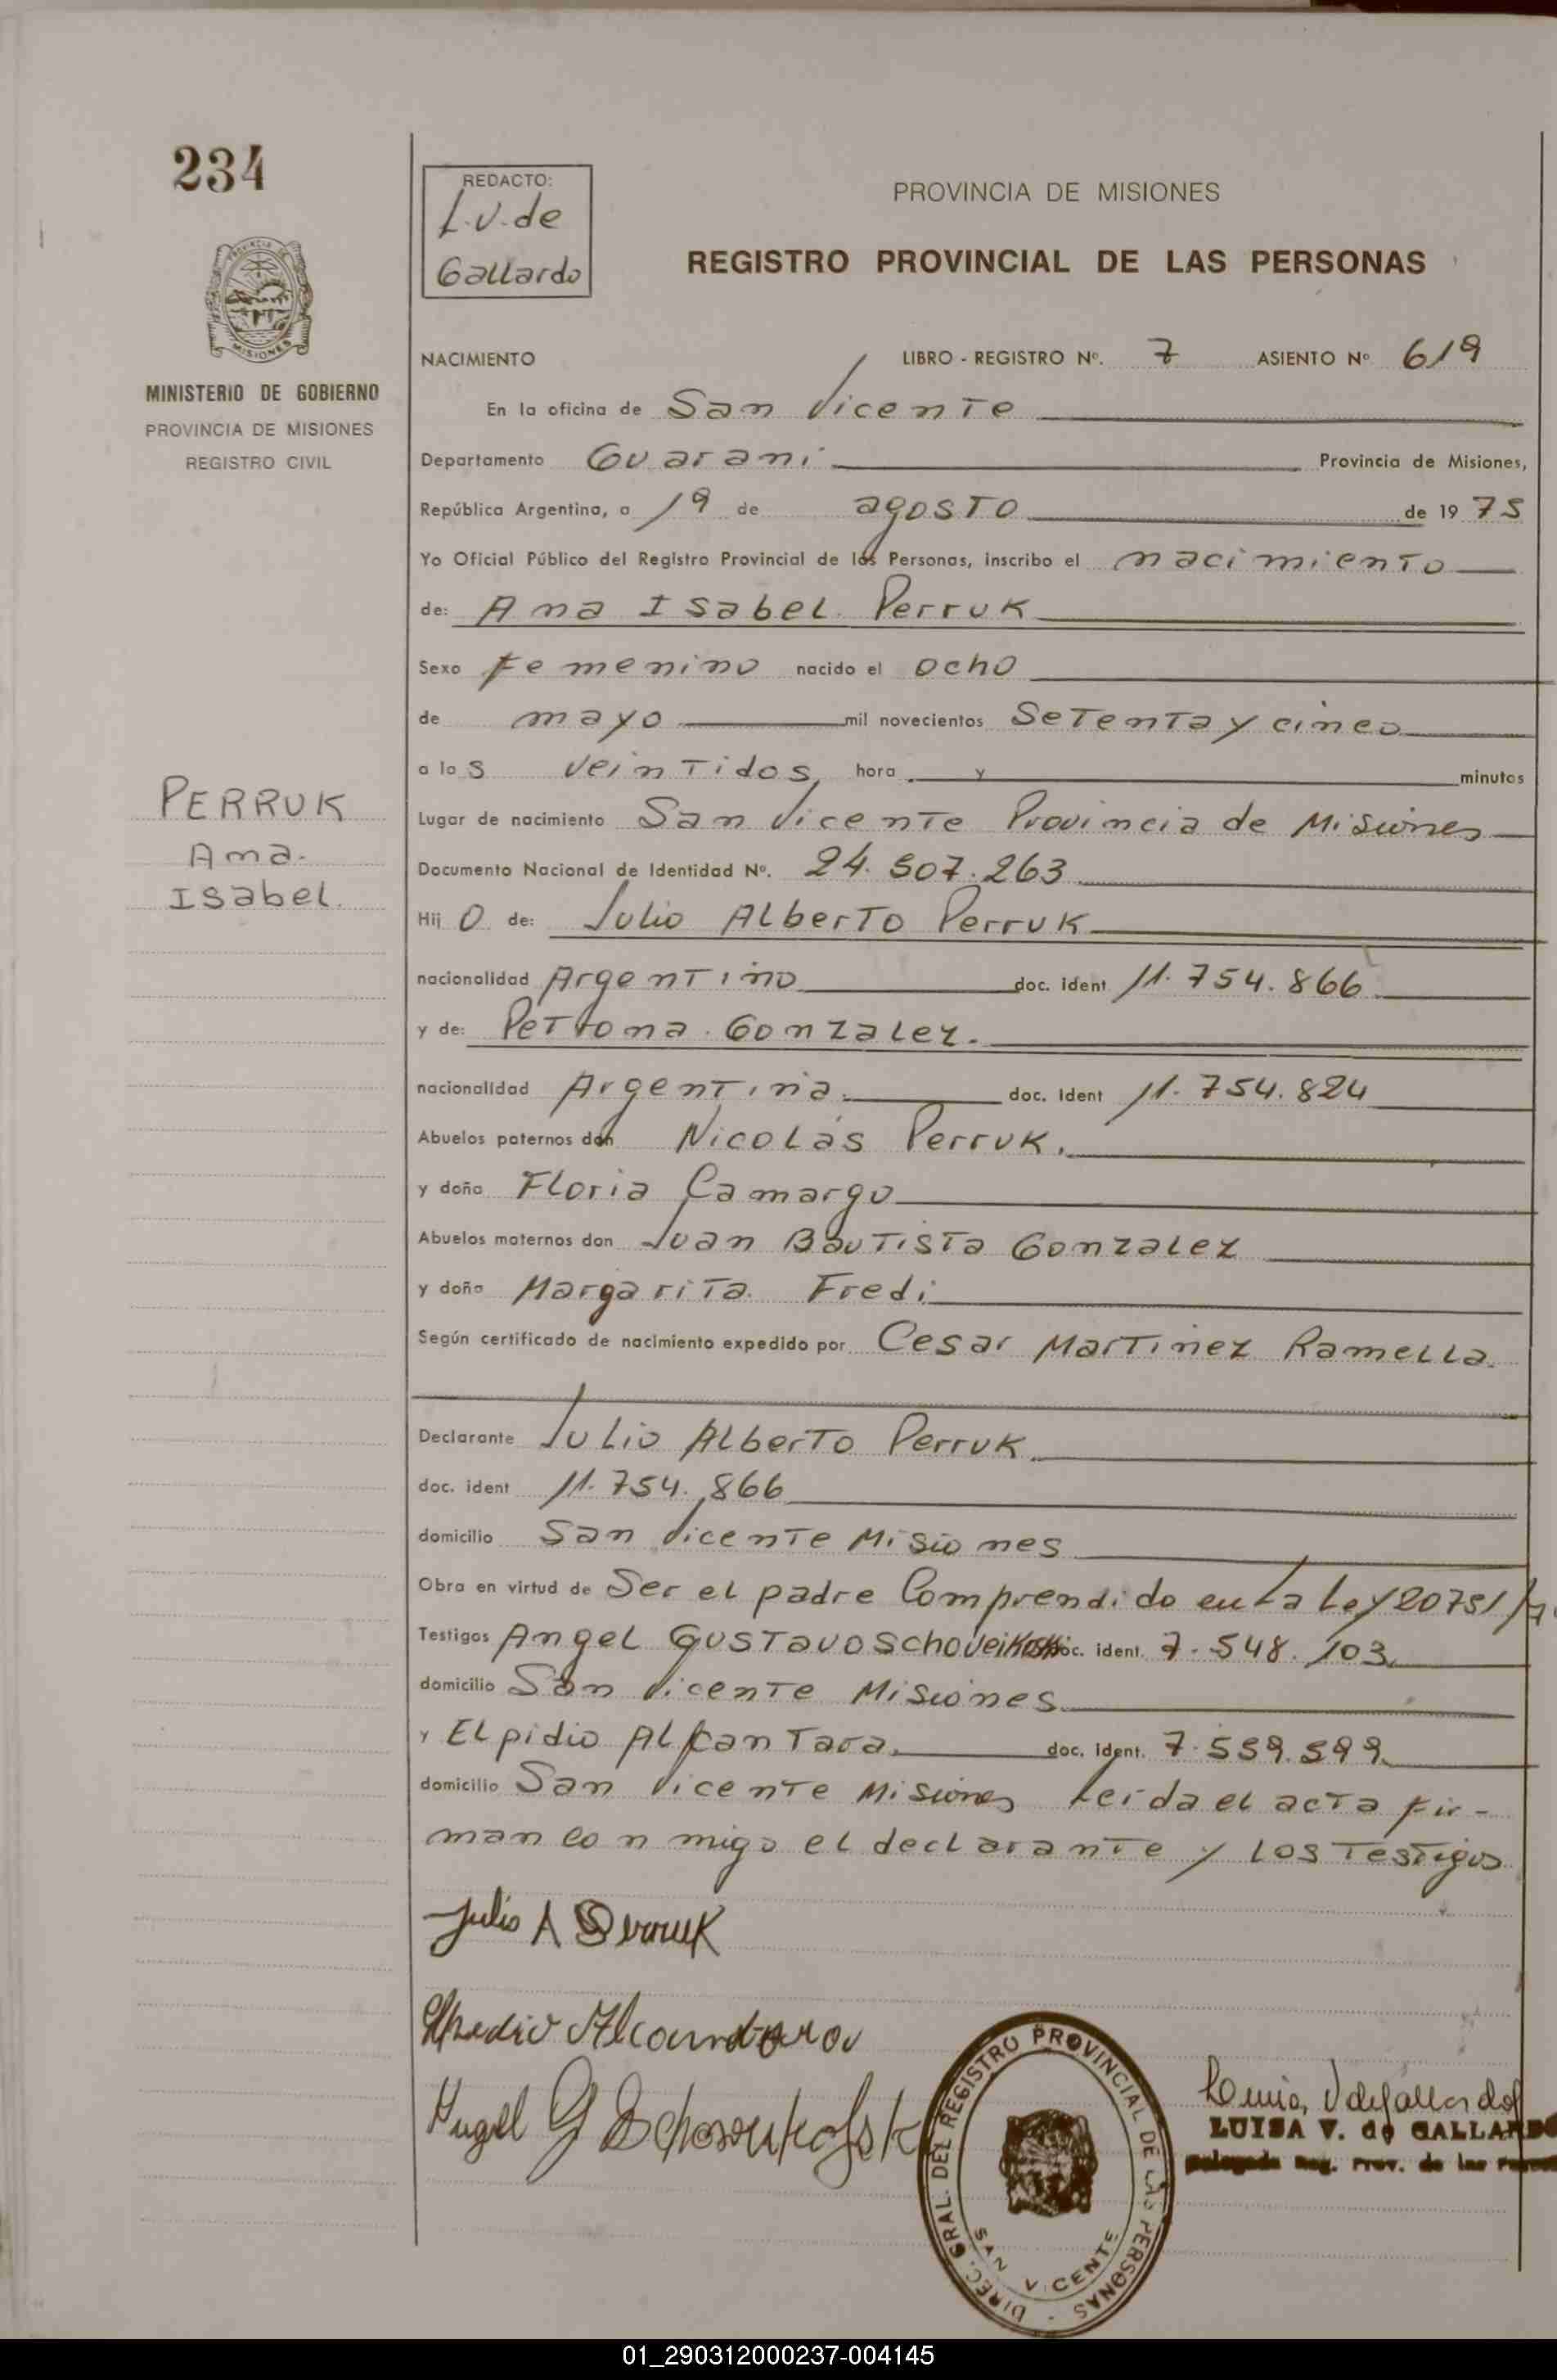 234
REDACTO:
L.V. de
Gallardo
PROVINCIA DE MISIONES
REGISTRO PROVINCIAL DE LAS PERSONAS
PROVINCIA DE
MISIONES
MINISTERIO DE GOBIERNO
PROVINCIA DE MISIONES
REGISTRO CIVIL
PERRUK
Ana
Isabel.
NACIMIENTO LIBRO - REGISTRO Nº. 7 ASIENTO Nº 619
En la oficina de San Vicente
Departamento Guarani Provincia de Misiones,
República Argentina, a 19 de agosto de 1975
Yo Oficial Público del Registro Provincial de las Personas, inscribo el nacimiento
de: Ana Isabel Perruk
Sexo Femenino nacido el ocho
de mayo mil novecientos setenta y cinco
a las veintidos hora y minutos
Lugar de nacimiento San Vicente Provincia de Misiones
Documento Nacional de Identidad Nº. 24.507.263
Hijo de: Julio Alberto Perruk
nacionalidad Argentino doc. ident 11.754.866
y de: Petrona Gonzalez.
nacionalidad Argentina. doc. ident 11.754.824
Abuelos paternos don Nicolás Perruk.
y doña Floria Camargo
Abuelos maternos don Juan Bautista Gonzalez
y doña Margarita Fredi
Según certificado de nacimiento expedido por Cesar Martinez Ramella.
Declarante Julio Alberto Perruk
doc. ident 11.754.866
domicilio San Vicente Misiones
Obra en virtud de Ser el padre Comprendido en la Ley 20751/
Testigos Angel Gustavo doc. ident. 7.548.103
domicilio San Vicente Misiones
y Elpidio Alcantara. doc. ident. 7.559.599
domicilio San Vicente Misiones Leida el acta fir-
man conmigo el declarante y los testigos
Julio A Perruk
Elpedio Alcantara
Angel G
DIREC. GRAL. DEL REGISTRO PROVINCIAL DE LAS PERSONAS
SAN VICENTE
Luisa V de Gallardo
LUISA V. de GALLARDO
Delegada Reg. Prov. de las
01_290312000237-004145